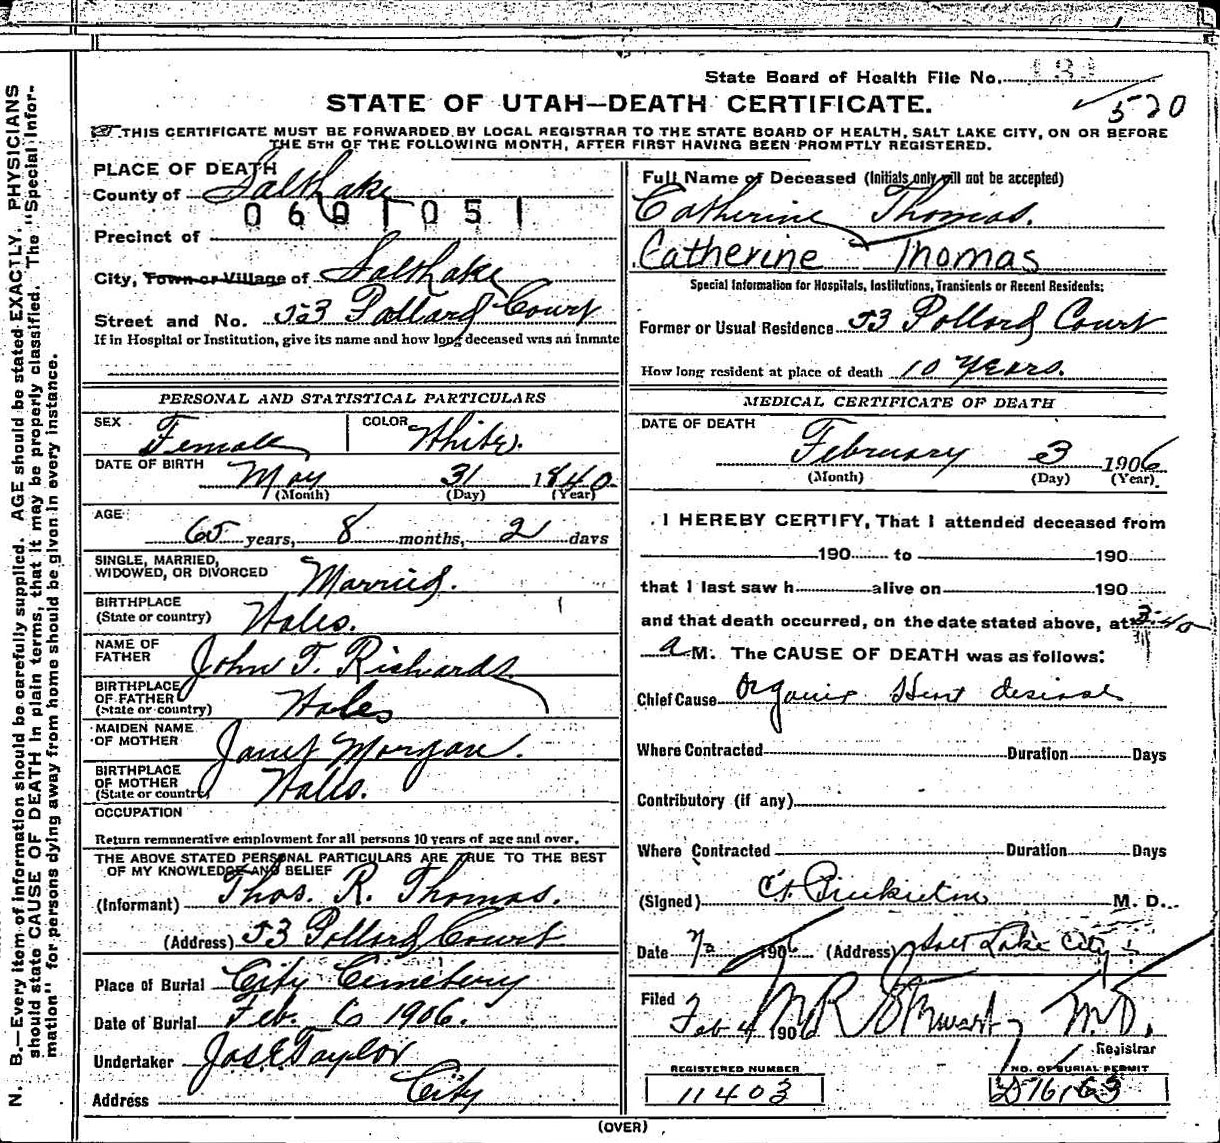 State Board of Health File No. 131
STATE OF UTAH—DEATH CERTIFICATE.
520
THIS CERTIFICATE MUST BE FORWARDED BY LOCAL REGISTRAR TO THE STATE BOARD OF HEALTH, SALT LAKE CITY, ON OR BEFORE
THE 5TH OF THE FOLLOWING MONTH, AFTER FIRST HAVING BEEN PROMPTLY REGISTERED.
PLACE OF DEATH
County of Salt Lake
0601051
Precinct of
City, Town or Village of Salt Lake
Street and No. 53 Pollard Court
If in Hospital or Institution, give its name and how long deceased was an inmate
PERSONAL AND STATISTICAL PARTICULARS
SEX Female COLOR White.
DATE OF BIRTH May 31 1840
(Month) (Day) (Year)
AGE
65 years, 8 months, 2 days
SINGLE, MARRIED,
WIDOWED, OR DIVORCED Married.
BIRTHPLACE
(State or country) Wales.
NAME OF
FATHER John T. Richards
BIRTHPLACE
OF FATHER
(State or country) Wales
MAIDEN NAME
OF MOTHER Janet Morgan.
BIRTHPLACE
OF MOTHER
(State or country) Wales.
OCCUPATION
Return remunerative employment for all persons 10 years of age and over.
THE ABOVE STATED PERSONAL PARTICULARS ARE TRUE TO THE BEST
OF MY KNOWLEDGE AND BELIEF
(Informant) Thos. R. Thomas.
(Address) 53 Pollard Court
Place of Burial City Cemetery
Date of Burial Feb. 6 1906.
Undertaker Jos E Taylor
Address City
Full Name of Deceased (Initials only will not be accepted)
Catherine Thomas.
Catherine Thomas
Special Information for Hospitals, Institutions, Transients or Recent Residents:
Former or Usual Residence 53 Pollard Court
How long resident at place of death 10 Years.
MEDICAL CERTIFICATE OF DEATH
DATE OF DEATH
February 3 1906
(Month) (Day) (Year)
I HEREBY CERTIFY, That I attended deceased from
190 to 190
that I last saw h alive on 190
and that death occurred, on the date stated above, at 3-40
a M. The CAUSE OF DEATH was as follows:
Chief Cause Organic Heart desease
Where Contracted Duration Days
Contributory (if any)
Where Contracted Duration Days
(Signed) M. D.
Date 1906 (Address) Salt Lake City
Filed Feb 4 1906 M R Stewart M.D.
Registrar
REGISTERED NUMBER
11403
NO. OF BURIAL PERMIT
(OVER)
N. B.—Every item of information should be carefully supplied. AGE should be stated EXACTLY. PHYSICIANS
should state CAUSE OF DEATH in plain terms, that it may be properly classified. The "Special Infor-
mation" for persons dying away from home should be given in every instance.